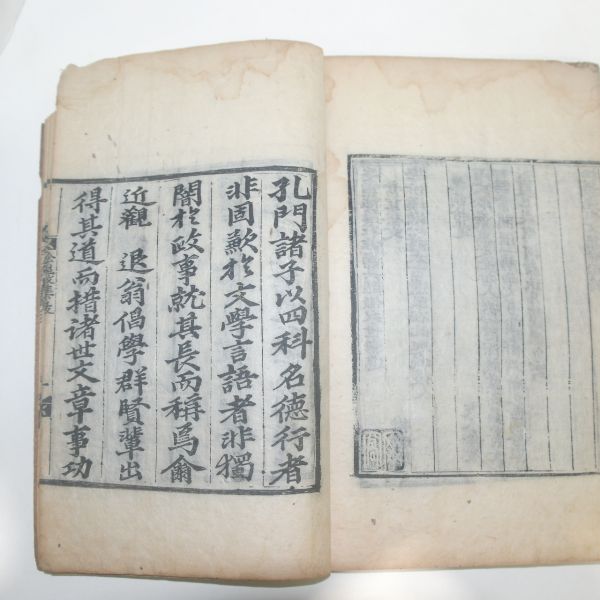 孔門諸子以四科名德行者
非固歉於文學言語者非獨
闇於政事就其長而稱爲爾
近觀 退翁倡學群賢輩出
得其道而措諸世文章事功